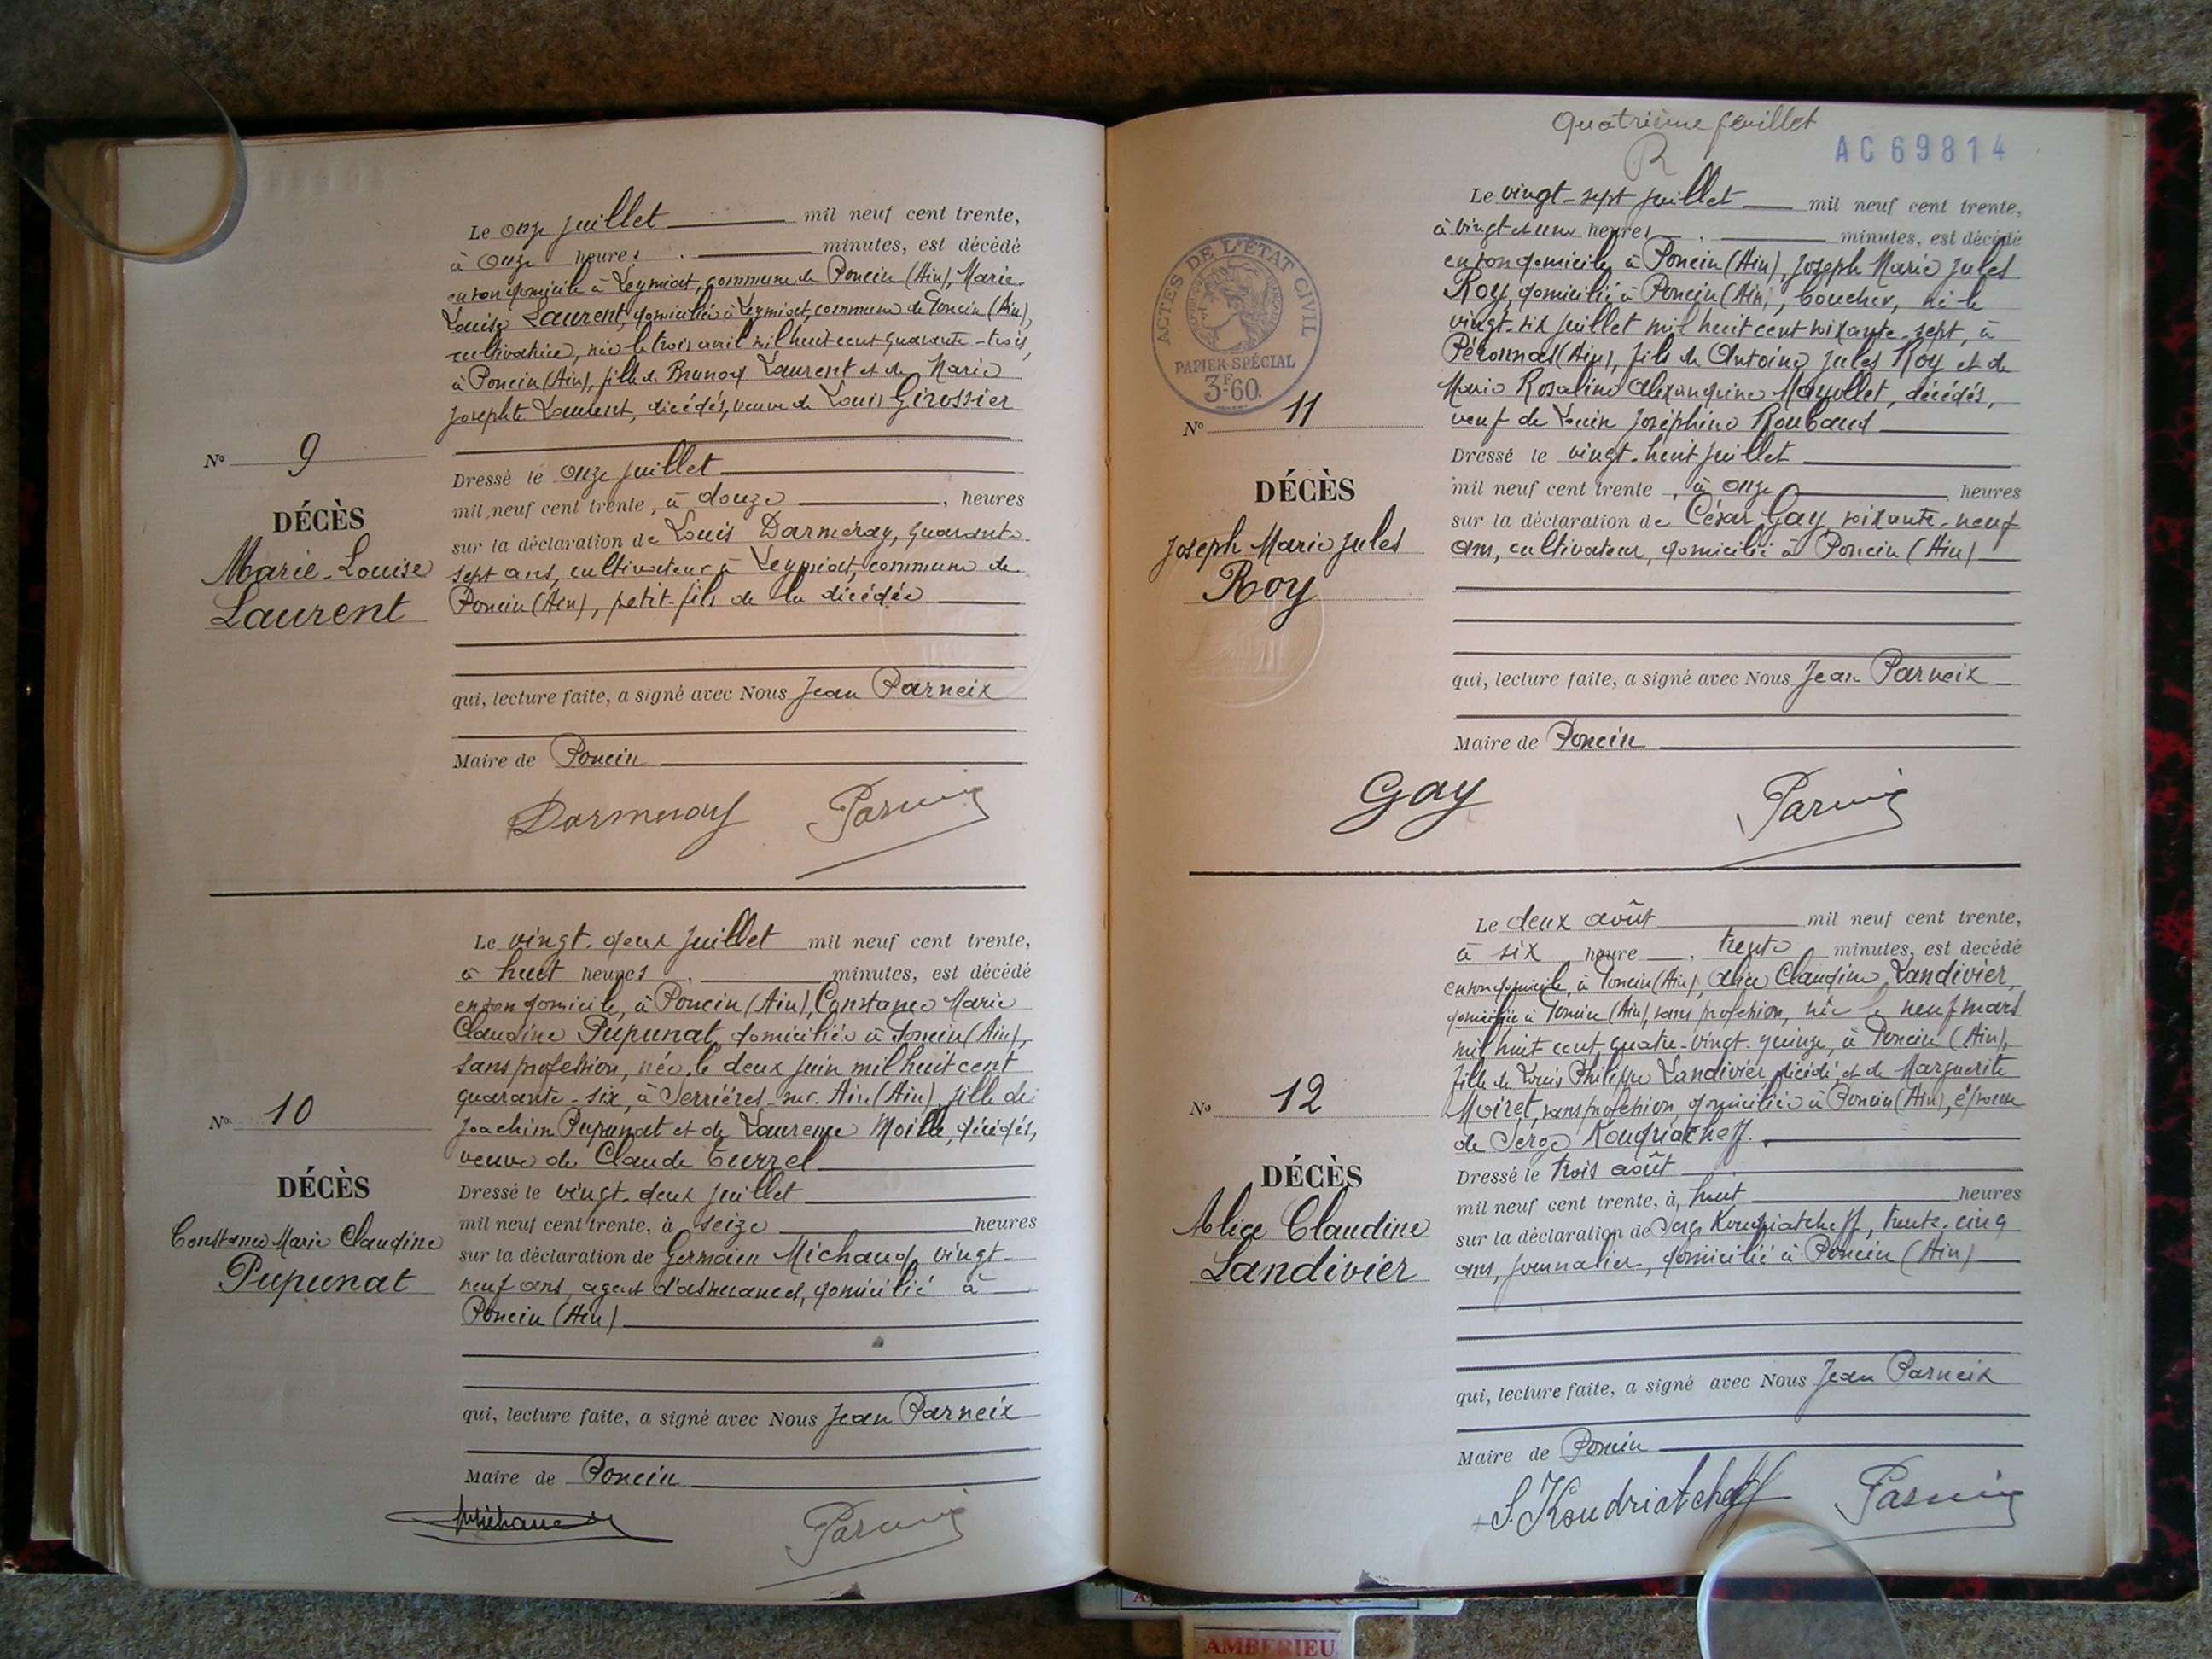 Le onze juillet mil neuf cent trente,
à onze heures minutes, est décédé
en son domicile à Leymiat, commune de Poncin (Ain), Marie
Louise Laurent, domiciliée à Leymiat, commune de Poncin (Ain),
cultivatrice, née le trois avril mil huit cent quarante-trois,
à Poncin (Ain), fille de Laurent et de Marie
Josephte Laurent, décédés, veuve de Louis Girossier
N° 9
DÉCÈS
Marie-Louise
Laurent
Dressé le onze juillet
mil neuf cent trente, à douze, heures
sur la déclaration de Louis Darmeray, quarante-
sept ans, cultivateur à Leymiat, commune de
Poncin (Ain), petit-fils de la décédée
qui, lecture faite, a signé avec Nous Jean Parneix
Maire de Poncin
Darmeray Parneix
Le vingt-deux juillet mil neuf cent trente,
à huit heures minutes, est décédé
en son domicile, à Poncin (Ain), Constance Marie
Claudine Pupunat, domiciliée à Poncin (Ain),
sans profession, née le deux juin mil huit cent
quarante-six, à Serrières-sur-Ain (Ain), fille de
Joachim Pupunat et de Laurence Moille, décédés,
veuve de Claude Eurzel
N° 10
DÉCÈS
Constance Marie Claudine
Pupunat
Dressé le vingt-deux juillet
mil neuf cent trente, à seize heures
sur la déclaration de Germain Michaud, vingt-
neuf ans, agent d'assurances, domicilié à
Poncin (Ain)
qui, lecture faite, a signé avec Nous Jean Parneix
Maire de Poncin
Michaud Parneix
Quatrième feuillet
R
AC69814
Le vingt-sept juillet mil neuf cent trente,
à vingt et une heures minutes, est décédé
en son domicile à Poncin (Ain), Joseph Marie Jules
Roy, domicilié à Poncin (Ain), boucher, né le
vingt-six juillet mil huit cent soixante-sept, à
Péronnas (Ain), fils de Antoine Jules Roy et de
Marie Rosaline Alexandrine Mayollet, décédés,
veuf de Louise Joséphine Roubaud
ACTES DE L'ÉTAT CIVIL
PAPIER SPÉCIAL
3F-60.
N° 11
DÉCÈS
Joseph Marie Jules
Roy
Dressé le vingt-huit juillet
mil neuf cent trente, à onze heures
sur la déclaration de César Gay, soixante-neuf
ans, cultivateur, domicilié à Poncin (Ain)
qui, lecture faite, a signé avec Nous Jean Parneix
Maire de Poncin
Gay Parneix
Le deux août mil neuf cent trente,
à six heure, trente minutes, est décédé
en son domicile, à Poncin (Ain), Alice Claudine Landivier,
domiciliée à Poncin (Ain), sans profession, née le neuf mars
mil huit cent quatre-vingt-quinze, à Poncin (Ain),
fille de Louis Philippe Landivier, décédé et de Marguerite
Moiret, sans profession, domiciliée à Poncin (Ain), épouse
de Serge Koudriatcheff.
N° 12
DÉCÈS
Alice Claudine
Landivier
Dressé le trois août
mil neuf cent trente, à huit heures
sur la déclaration de Serge Koudriatcheff, trente-cinq
ans, journalier, domicilié à Poncin (Ain)
qui, lecture faite, a signé avec Nous Jean Parneix
Maire de Poncin
S. Koudriatcheff Parneix
AMBERIEU